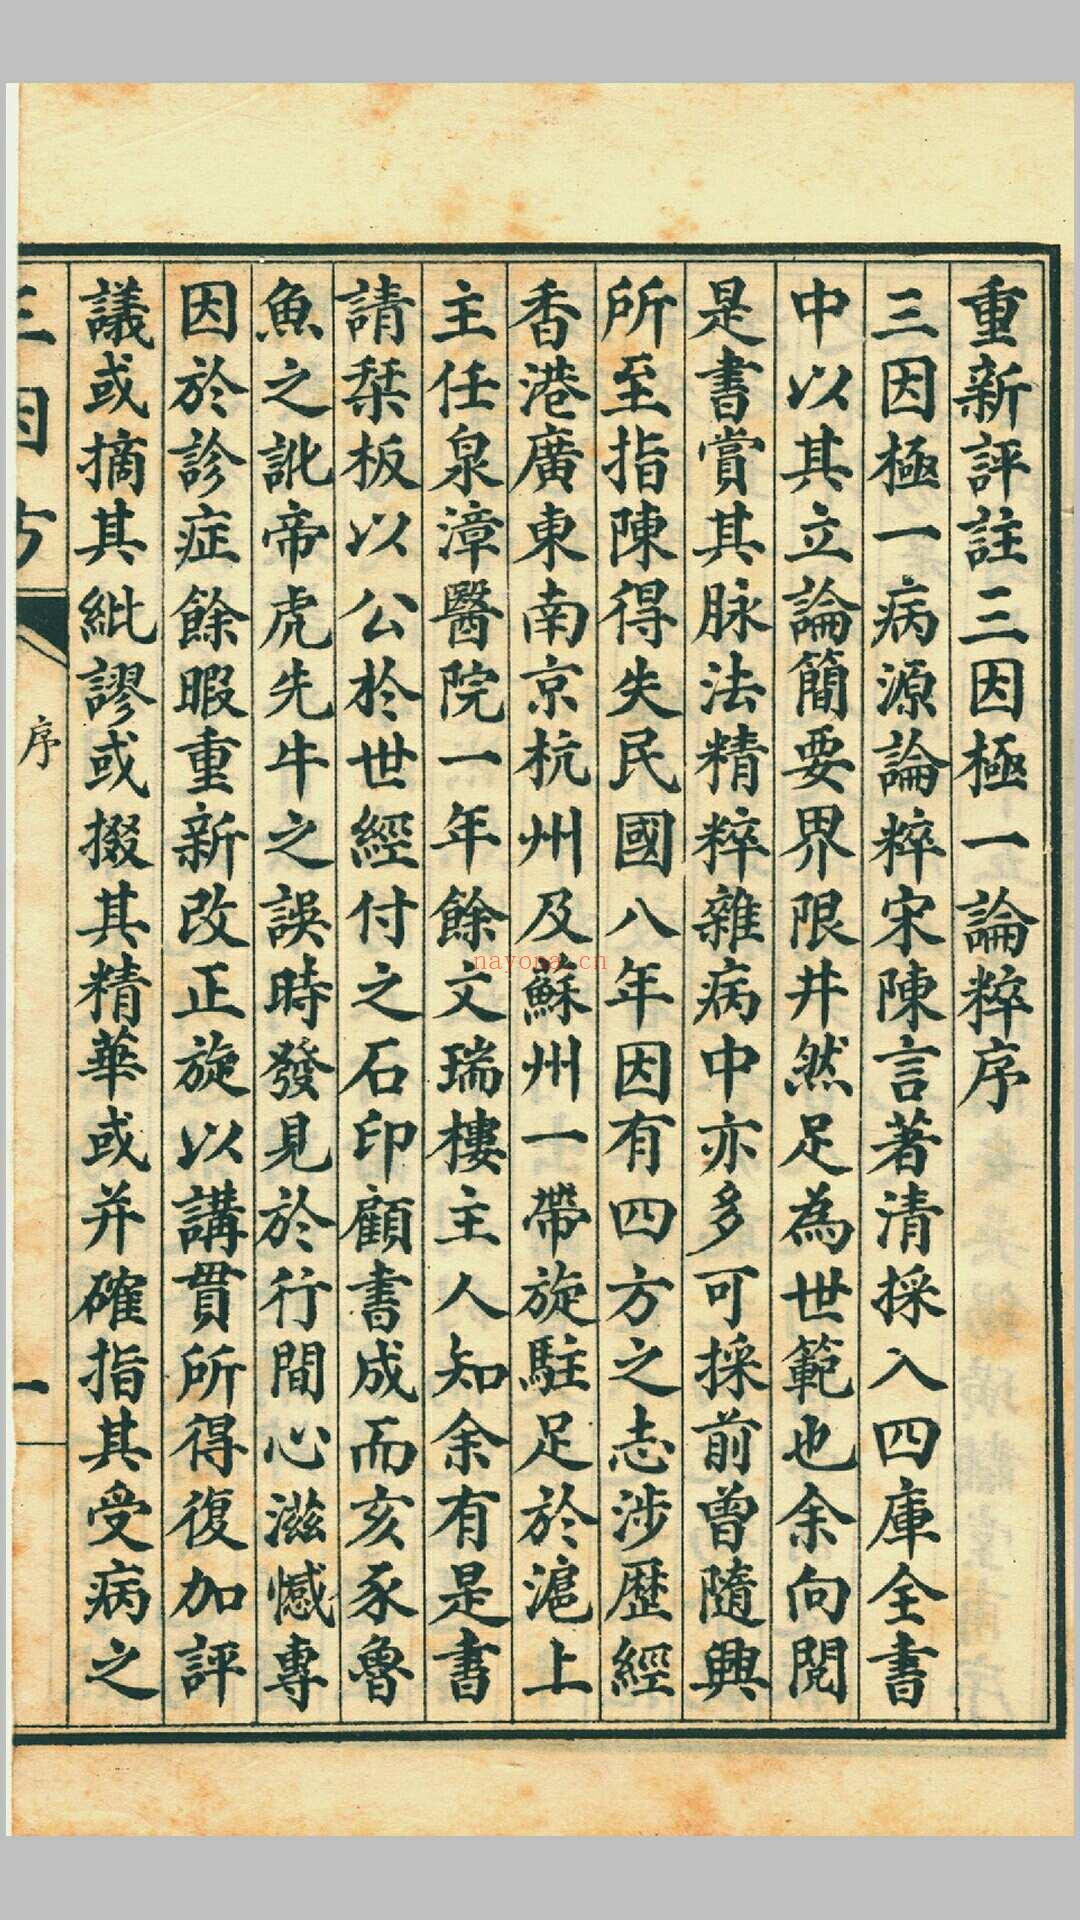 重新評註三因極一論粹序
三因極一病源論粹宋陳言著清採入四庫全書
中以其立論簡要界限井然足為世範也余向閱
是書賞其脉法精粹雜病中亦多可採前曾隨興
所至指陳得失民國八年因有四方之志涉歷經
香港廣東南京杭州及蘇州一帶旋駐足於滬上
主任泉漳醫院一年餘文瑞樓主人知余有是書
請栞板以公於世經付之石印顧書成而亥豕魯
魚之訛帝虎先牛之誤時發見於行間心滋憾專
因於診症餘暇重新改正旋以講貫所得復加評
議或摘其紕謬或掇其精華或并確指其受病之
三因方
序
一
nayona.cn